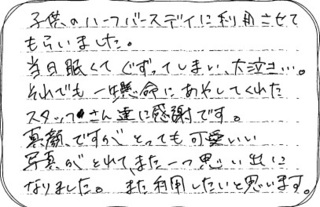 子供のハーフバースデイに利用させて
もらいました。
当日眠くてぐずってしまい、大泣き…。
それでも一生懸命にあやしてくれた
スタッフさん達に感謝です。
真顔ですがとっても可愛いい
写真がとれて、また一つ思い出に
なりました。また利用したいと思います。